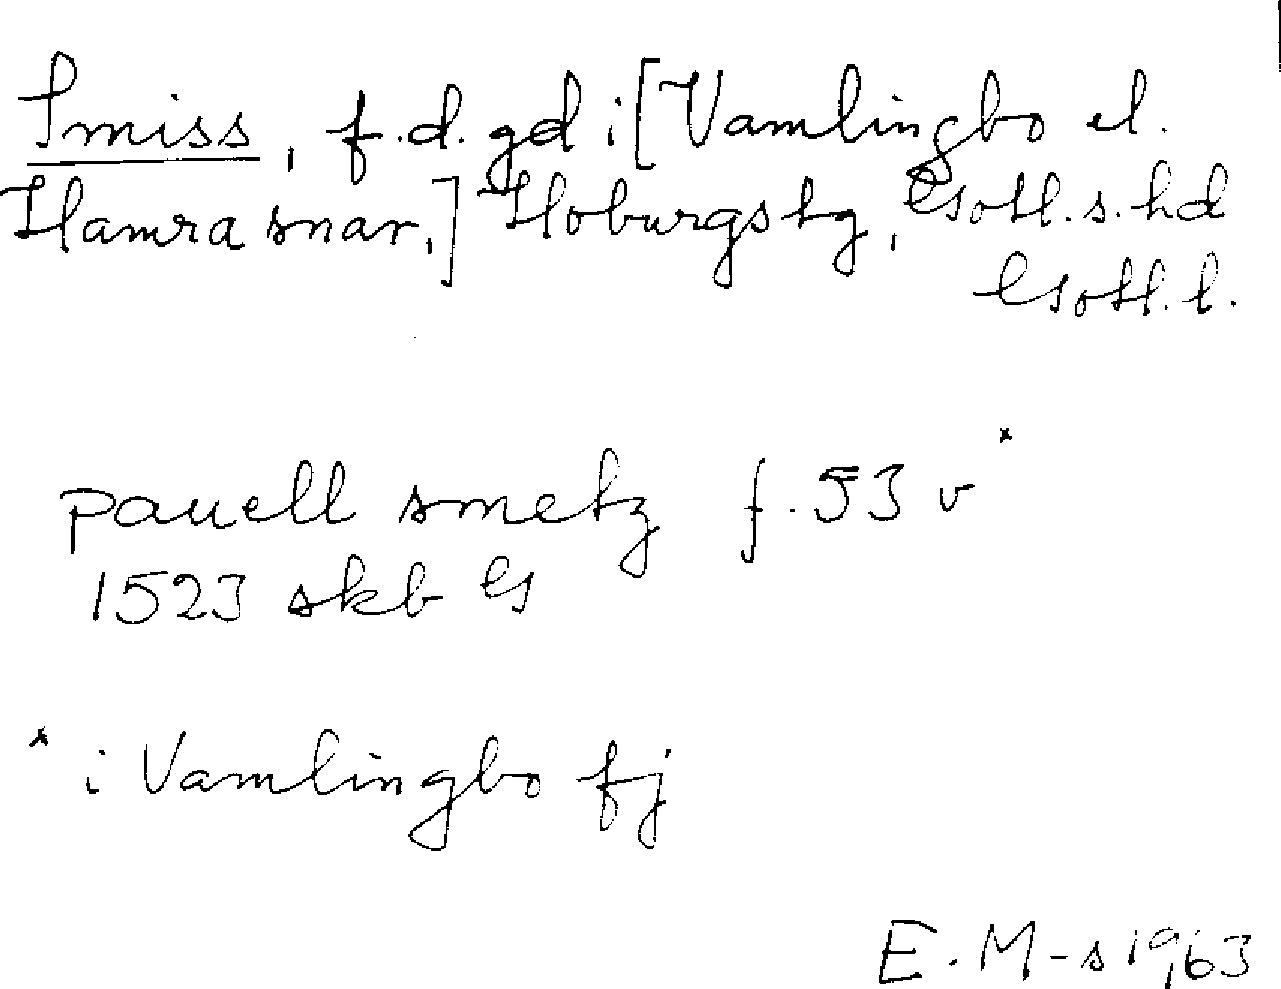 Smiss, f.d. gd i [Vamlingbo el.
Hamra snar,] Hoburgs tg, Gotl. s. hd
Gotl. l.
pauell smetz f. 53 v *
1523 skb G
* i Vamlingbo fj
E. M-s 1963